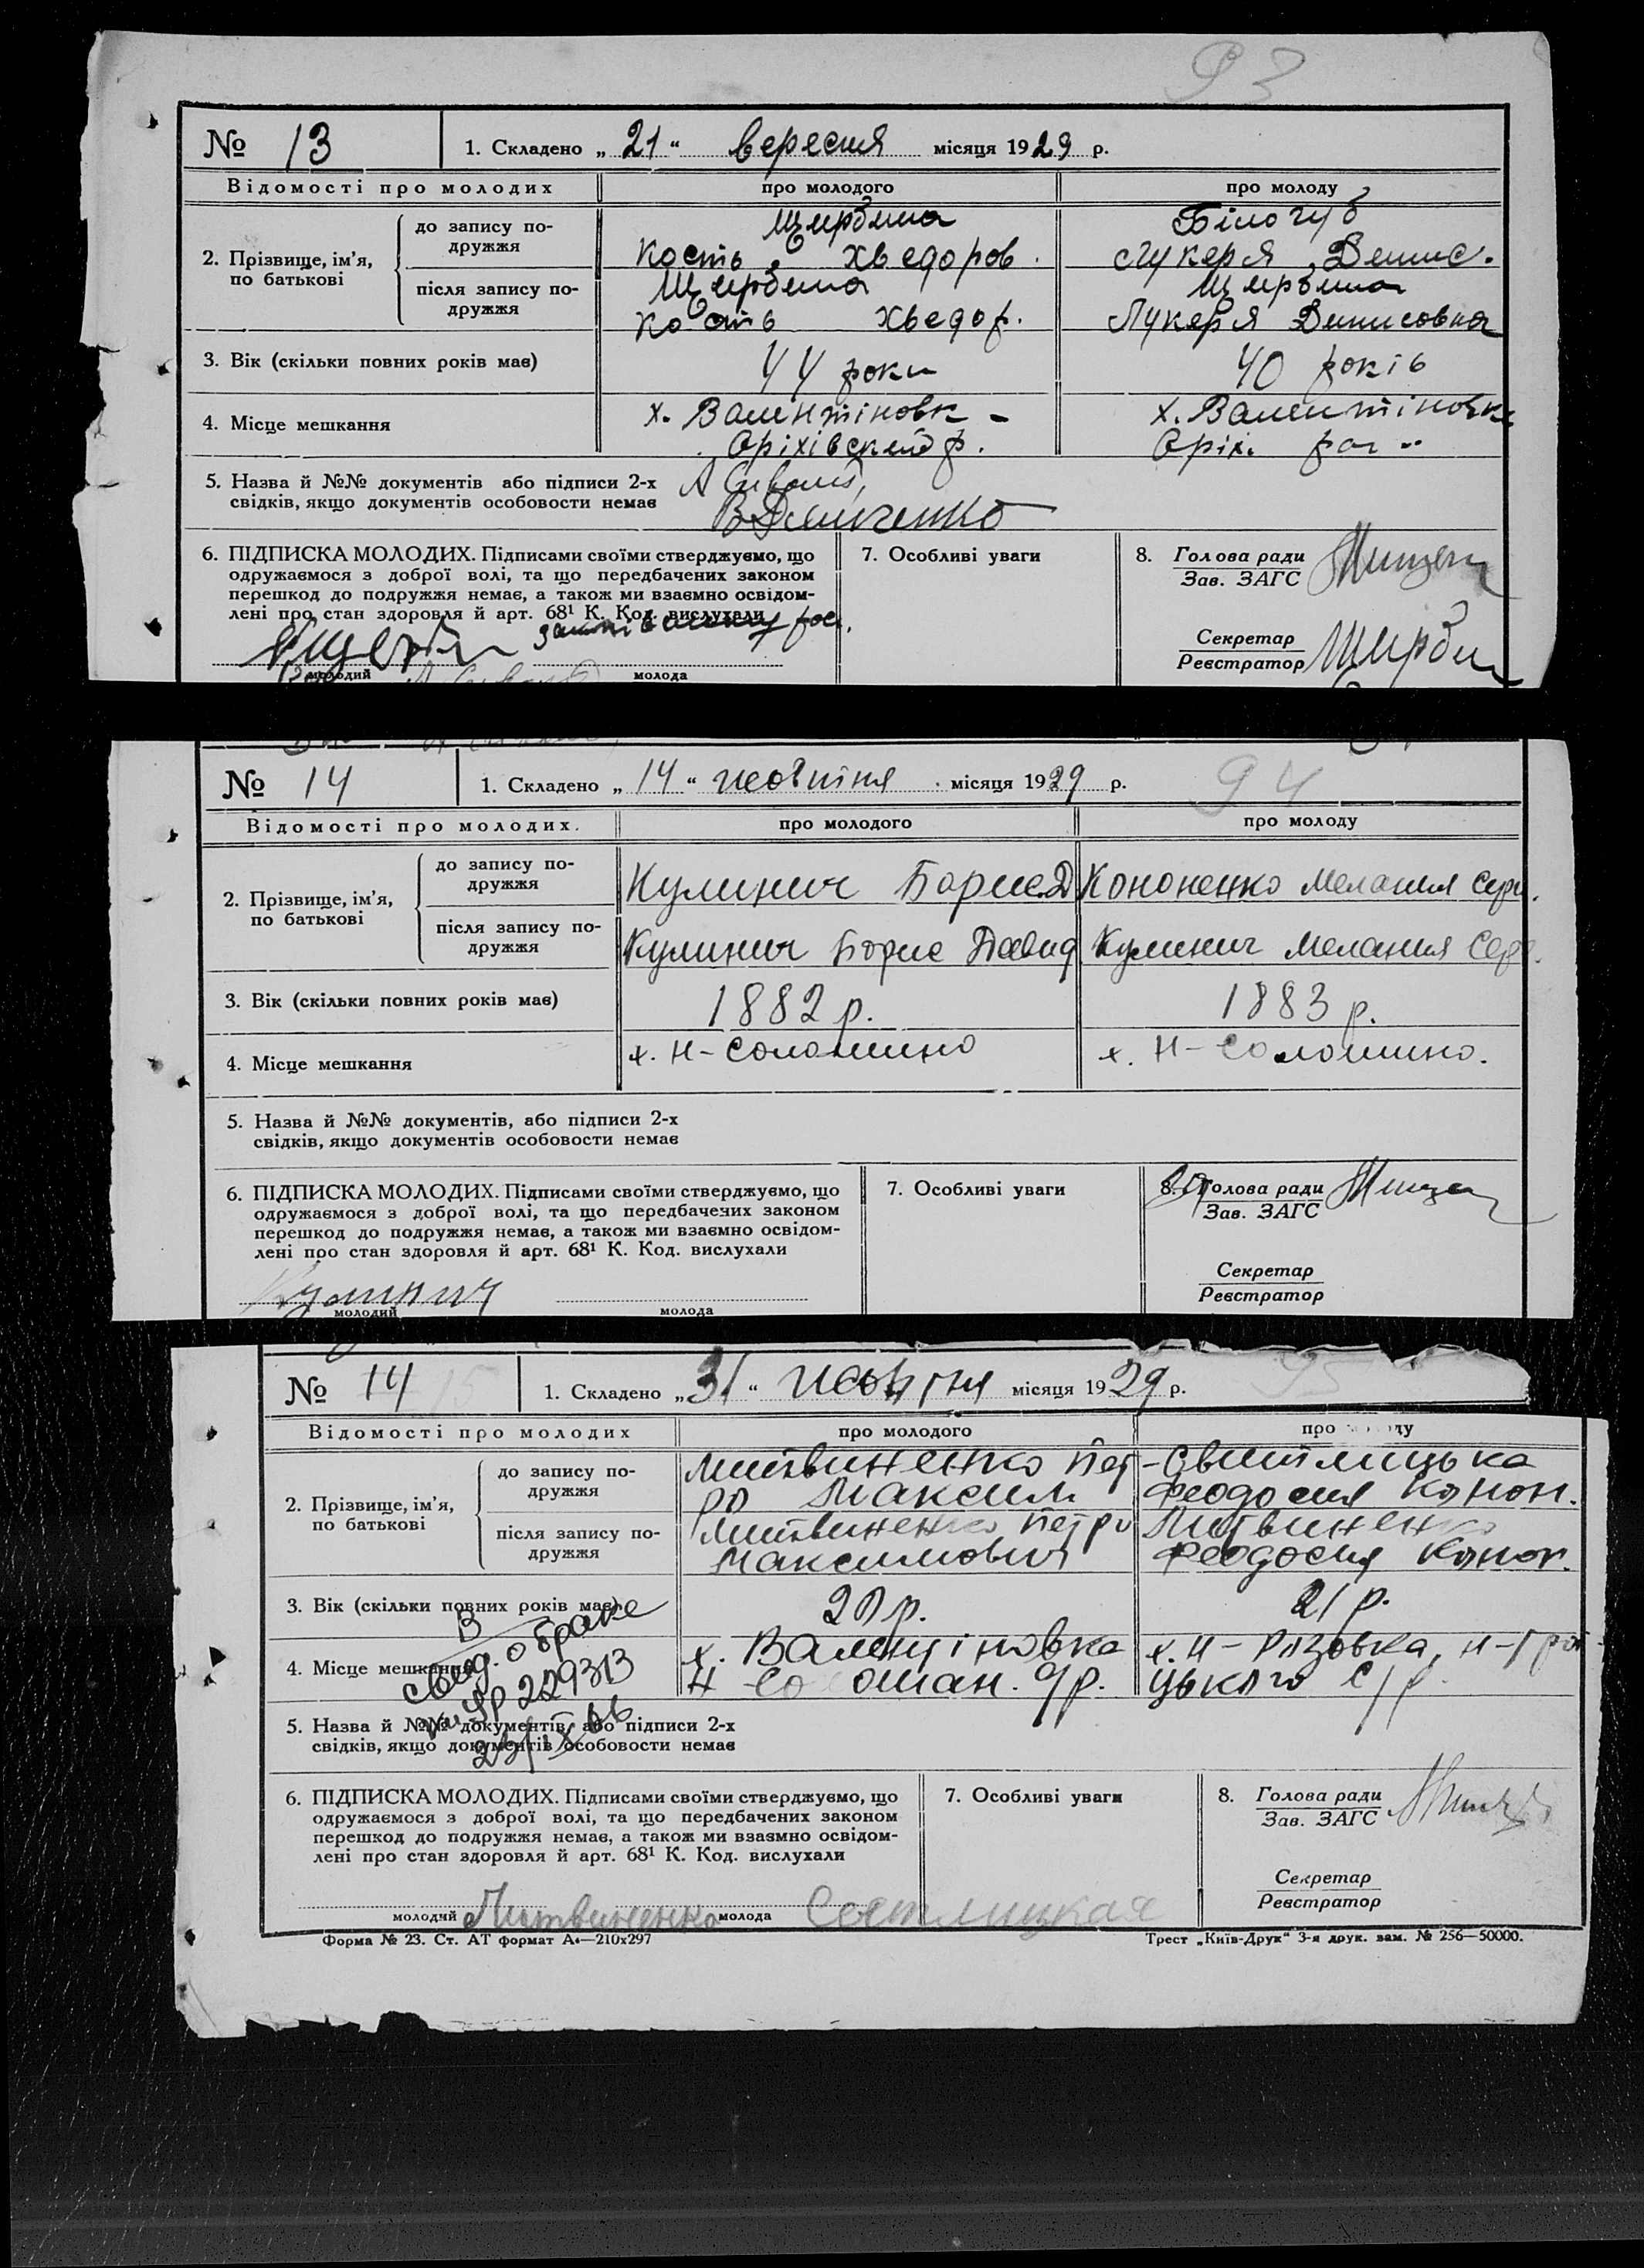 93
№ 13 1. Складено „ 21 “ вересня місяця 1929 р.
Відомості про молодих про молодого про молоду
2. Прізвище, ім’я, по батькові
до запису по-дружжя
Щербина Білогуб
Кость Хведоров. Лукеря Денис.
після запису по-дружжя
Щербина Щербина
Кость Хведор. Лукеря Денисовна
3. Вік (скільки повних років має) 44 роки 40 років
4. Місце мешкання х. Валентіновк - х. Валентіновка
Оріхівский р. Оріх. ра
5. Назва й №№ документів або підписи 2-х
свідків, якщо документів особовости немає
6. ПІДПИСКА МОЛОДИХ. Підписами своїми стверджуємо, що 7. Особливі уваги 8. Голова ради
одружаємося з доброї волі, та що передбачених законом Зав. ЗАГС
перешкод до подружжя немає, а також ми взаємно освідом-
лені про стан здоровля й арт. 68¹ К. Код. вислухали
Секретар Щерби
Реєстратор
молодий молода
№ 14 1. Складено „ 14 “ жовтня місяця 1929 р. 94
Відомості про молодих. про молодого про молоду
2. Прізвище, ім’я, по батькові
до запису по-дружжя
Кулинич Борис Д Кононенко Мелания Серг.
після запису по-дружжя
Кулинич Борис Давид Кулинич Мелания Серг.
3. Вік (скільки повних років має) 1882 р. 1883 р.
4. Місце мешкання х. Н-Соломино х. Н-Соломино.
5. Назва й №№ документів, або підписи 2-х
свідків, якщо документів особовости немає
6. ПІДПИСКА МОЛОДИХ. Підписами своїми стверджуємо, що 7. Особливі уваги 8. Голова ради
одружаємося з доброї волі, та що передбачених законом Зав. ЗАГС
перешкод до подружжя немає, а також ми взаємно освідом-
лені про стан здоровля й арт. 68¹ К. Код. вислухали
Секретар
Реєстратор
Кулинич
молодий молода
№ 14 15 1. Складено „ 31 “ жовтня місяця 1929 р. 95
Відомості про молодих про молодого про молоду
2. Прізвище, ім’я, по батькові
до запису по-дружжя
Литвиненко Пет- Свитлицька
ро Максим Феодосия Конон.
після запису по-дружжя
Литвиненко Петро Литвиненко
Максимович Феодосия Конон.
3. Вік (скільки повних років має) 20 р. 21 р.
4. Місце мешкання х. Валентіновка х. Н-Розовка, Н-Гро-
Н Соломан. с/р. цького с/р.
В
свид. о браке
229313
23/IX 66
5. Назва й №№ документів, або підписи 2-х
свідків, якщо документів особовости немає
6. ПІДПИСКА МОЛОДИХ. Підписами своїми стверджуємо, що 7. Особливі уваги 8. Голова ради
одружаємося з доброї волі, та що передбачених законом Зав. ЗАГС
перешкод до подружжя немає, а також ми взаємно освідом-
лені про стан здоровля й арт. 68¹ К. Код. вислухали
Секретар
Реєстратор
молодий Литвиненко молода Светлицкая
Форма № 23. Ст. АТ формат А₄—210х297 Трест „Київ-Друк“ 3-я друк. зам. № 256—50000.